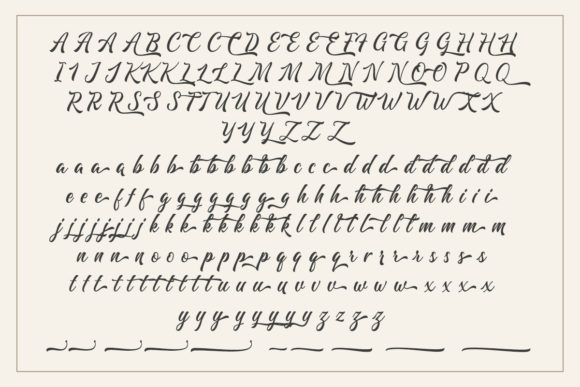 A A A A B C C C C D E E E E F F G G G G H H H
I I J J K K K L L L L M M M N N N O O P Q Q
R R R S S S T T U U U V V V W W W W X X
Y Y Y Z Z Z
a a a a b b b b b b b b c c c d d d d d d d d
e e e f f f g g g g g g g h h h h h h h h i i i
j j j j j j j j k k k k k k k k l l l l l l l l m m m m
n n n n o o o p p p p q q q q r r r r s s s s
t t t t t t t t t t t u u u u v v v w w w x x x
y y y y y y y y z z z z